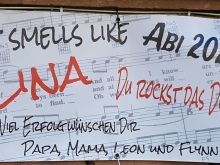 SMELLS LIKE ABI 202
LUNA DU ROCKST DAS D
VIEL ERFOLG WÜNSCHEN DIR
PAPA, MAMA, LEON UND FLYNN